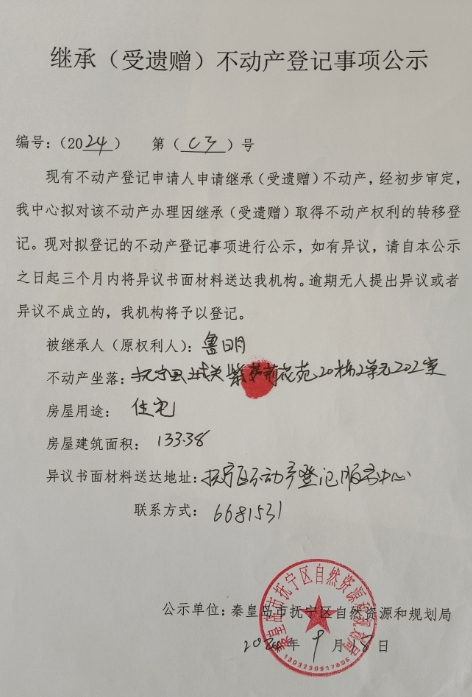 继承（受遗赠）不动产登记事项公示
编号:（2024） 第（03）号
现有不动产登记申请人申请继承（受遗赠）不动产，经初步审定，
我中心拟对该不动产办理因继承（受遗赠）取得不动产权利的转移登
记。现对拟登记的不动产登记事项进行公示，如有异议，请自本公示
之日起三个月内将异议书面材料送达我机构。逾期无人提出异议或者
异议不成立的，我机构将予以登记。
被继承人（原权利人）：鲁明
不动产坐落：抚宁县城关紫荷花苑20栋2单元202室
房屋用途：住宅
房屋建筑面积：133.38
异议书面材料送达地址：抚宁区不动产登记服务中心
联系方式：6681531
公示单位：秦皇岛市抚宁区自然资源和规划局
2024年9月18日
秦皇岛市抚宁区自然资源和规划局